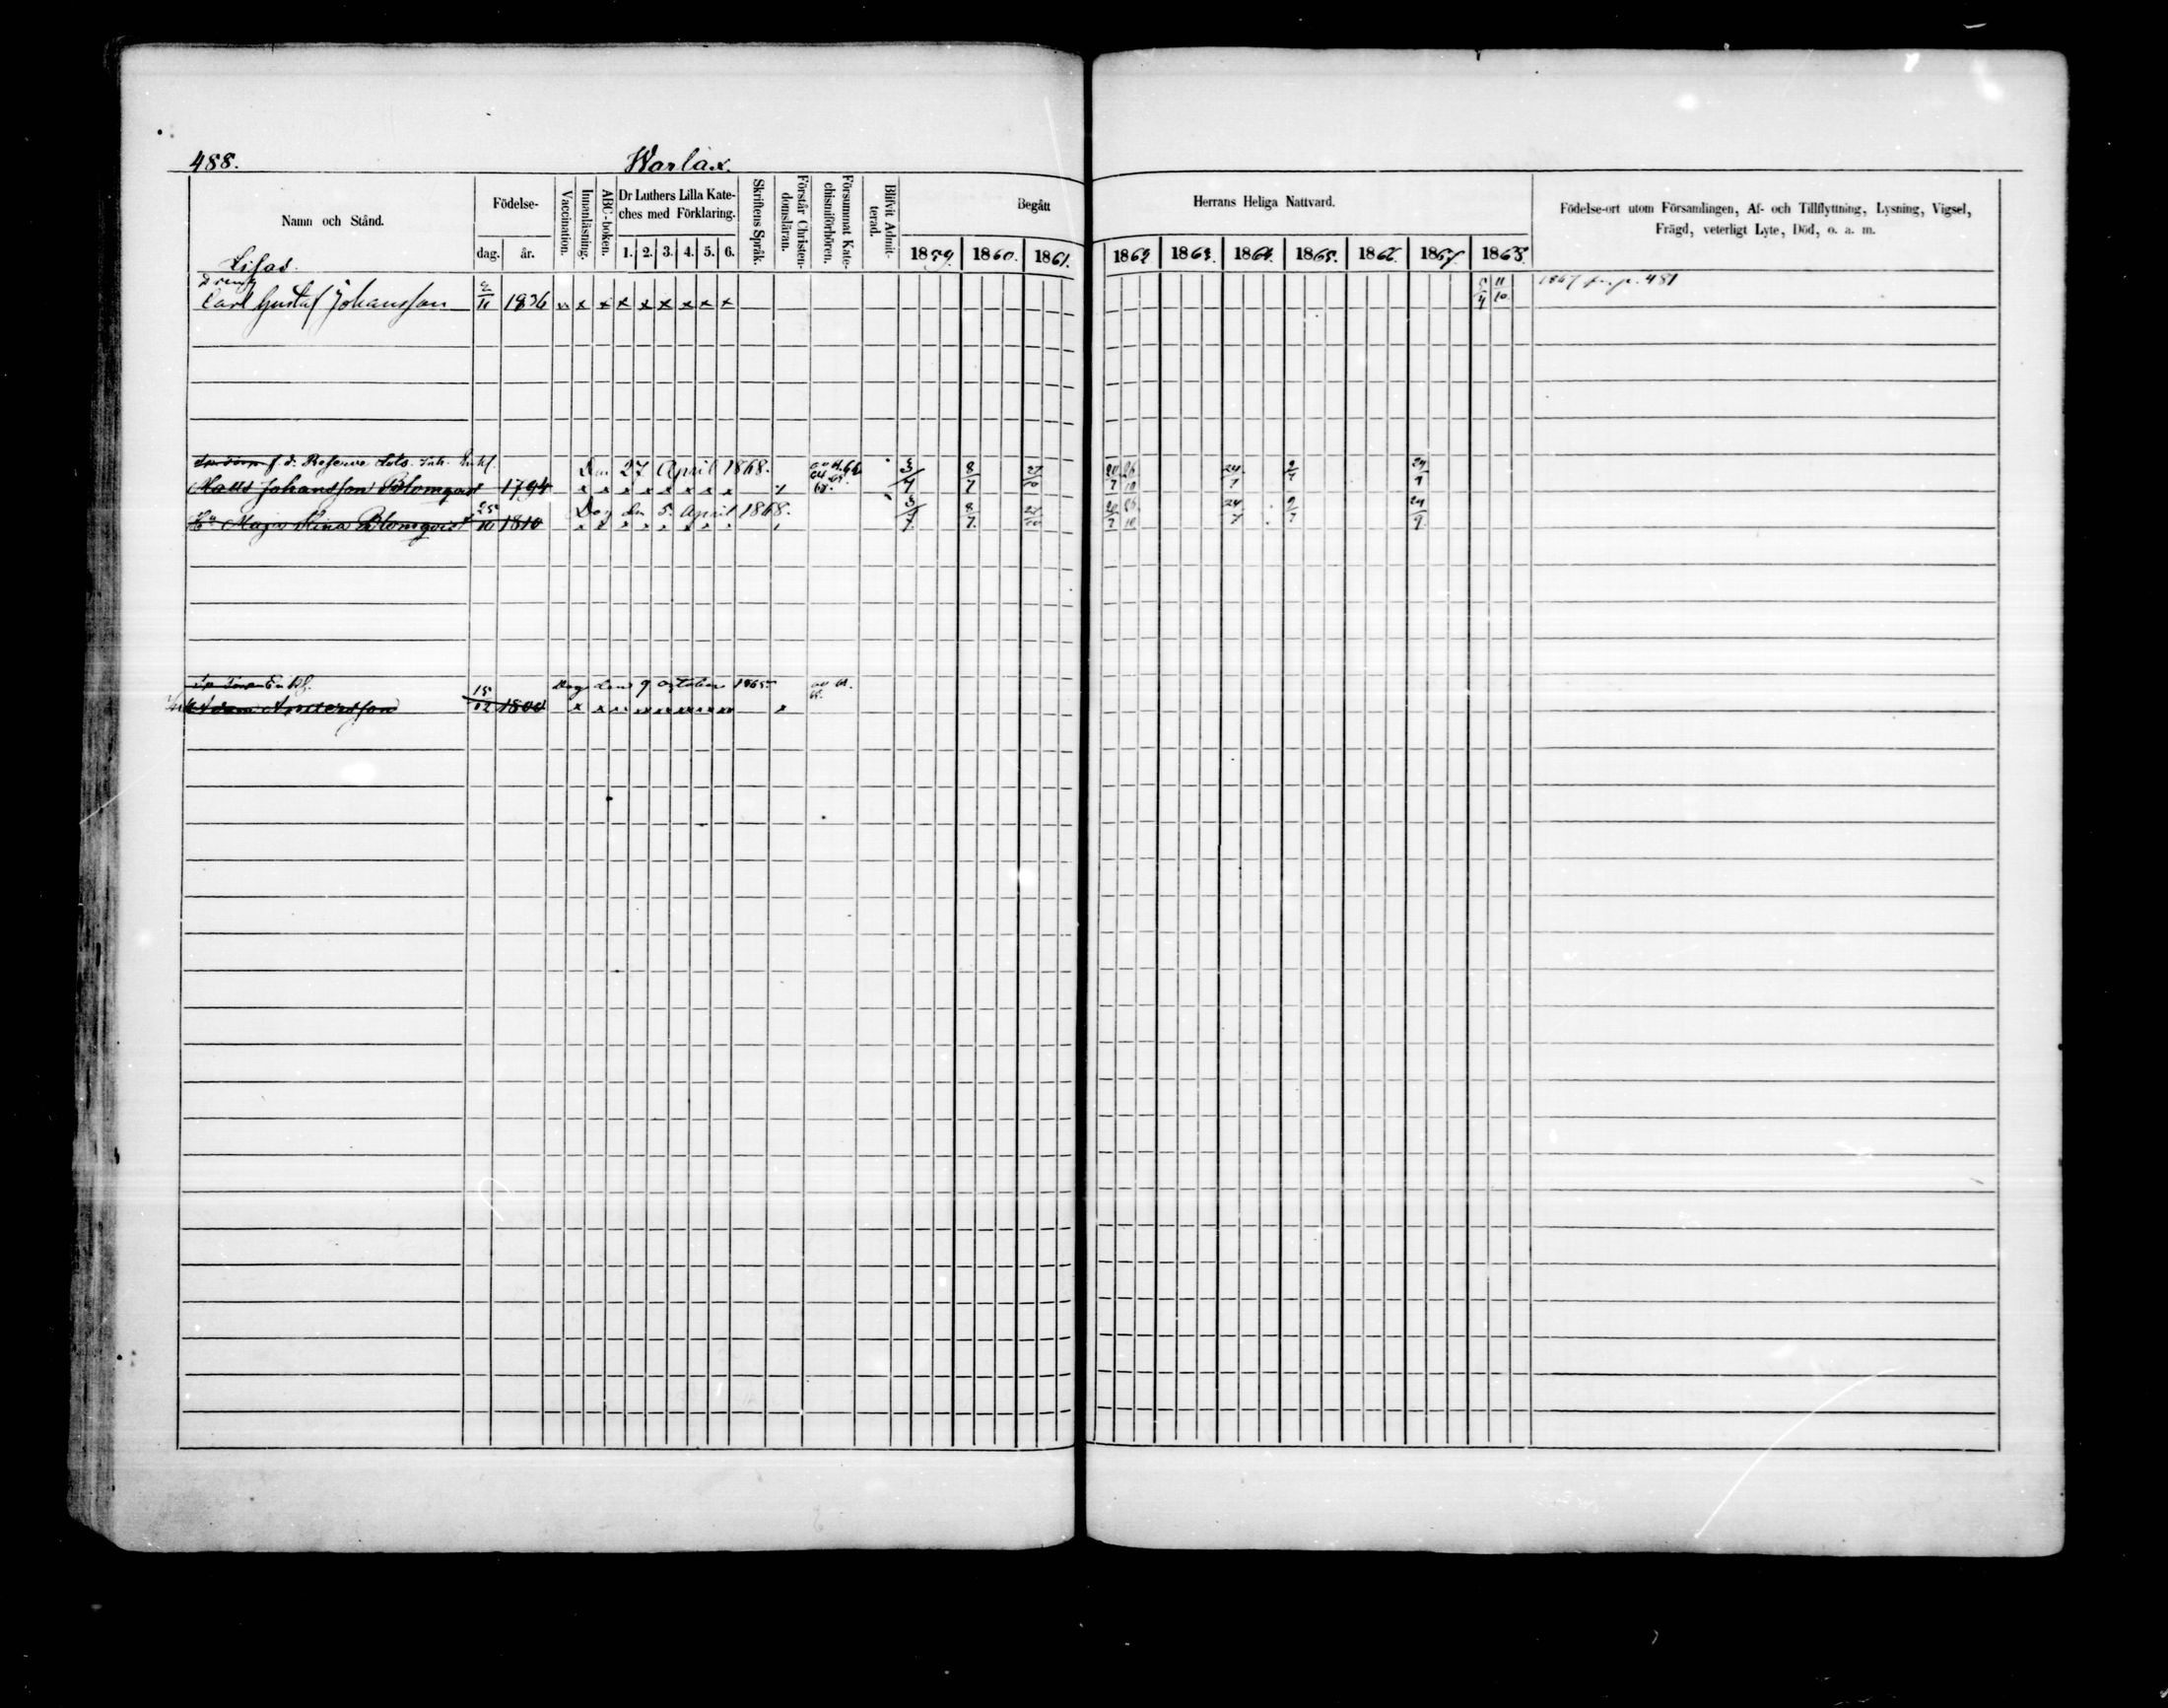 488.
Warlax.
Namn och Stånd.
Födelse-
dag.
år.
Vaccination.
Innanläsning.
ABC-boken.
Dr Luthers Lilla Kate-
ches med Förklaring.
1. 2. 3. 4. 5. 6.
Skriftens Språk.
Förstår Christen-
domsläran.
Försummat Kate-
chismiförhören.
Blifvit Admit-
terad.
Begått
1859. 1860. 1861.
Herrans Heliga Nattvard.
1862. 1863. 1864. 1865. 1866. 1867. 1868.
Födelse-ort utom Församlingen, Af- och Tillflyttning, Lysning, Vigsel,
Frägd, veterligt Lyte, Död, o. a. m.
Lisas.
Dreng
Carl Gustaf Johansson 2/11 1836 v x x x x x x x x 5/4 11/10 1867 fr. p. 481
f. d. Reserve Lots. Inh. Enkl. Den 27 April 1868.
Matts Johansson Blomqvist 1794 x x x x x x x x 3/7 8/7 27/10 20/7 26/10 24/7 2/7 29/9
Hu Maja Stina Blomqvist 25/10 1810 Dog den 5 April 1868. 3/7 8/7 27/10 20/7 26/10 24/7 2/7 29/9
Enkl. Dog den 9 October 1865
Adam Andersson 15/12 1800